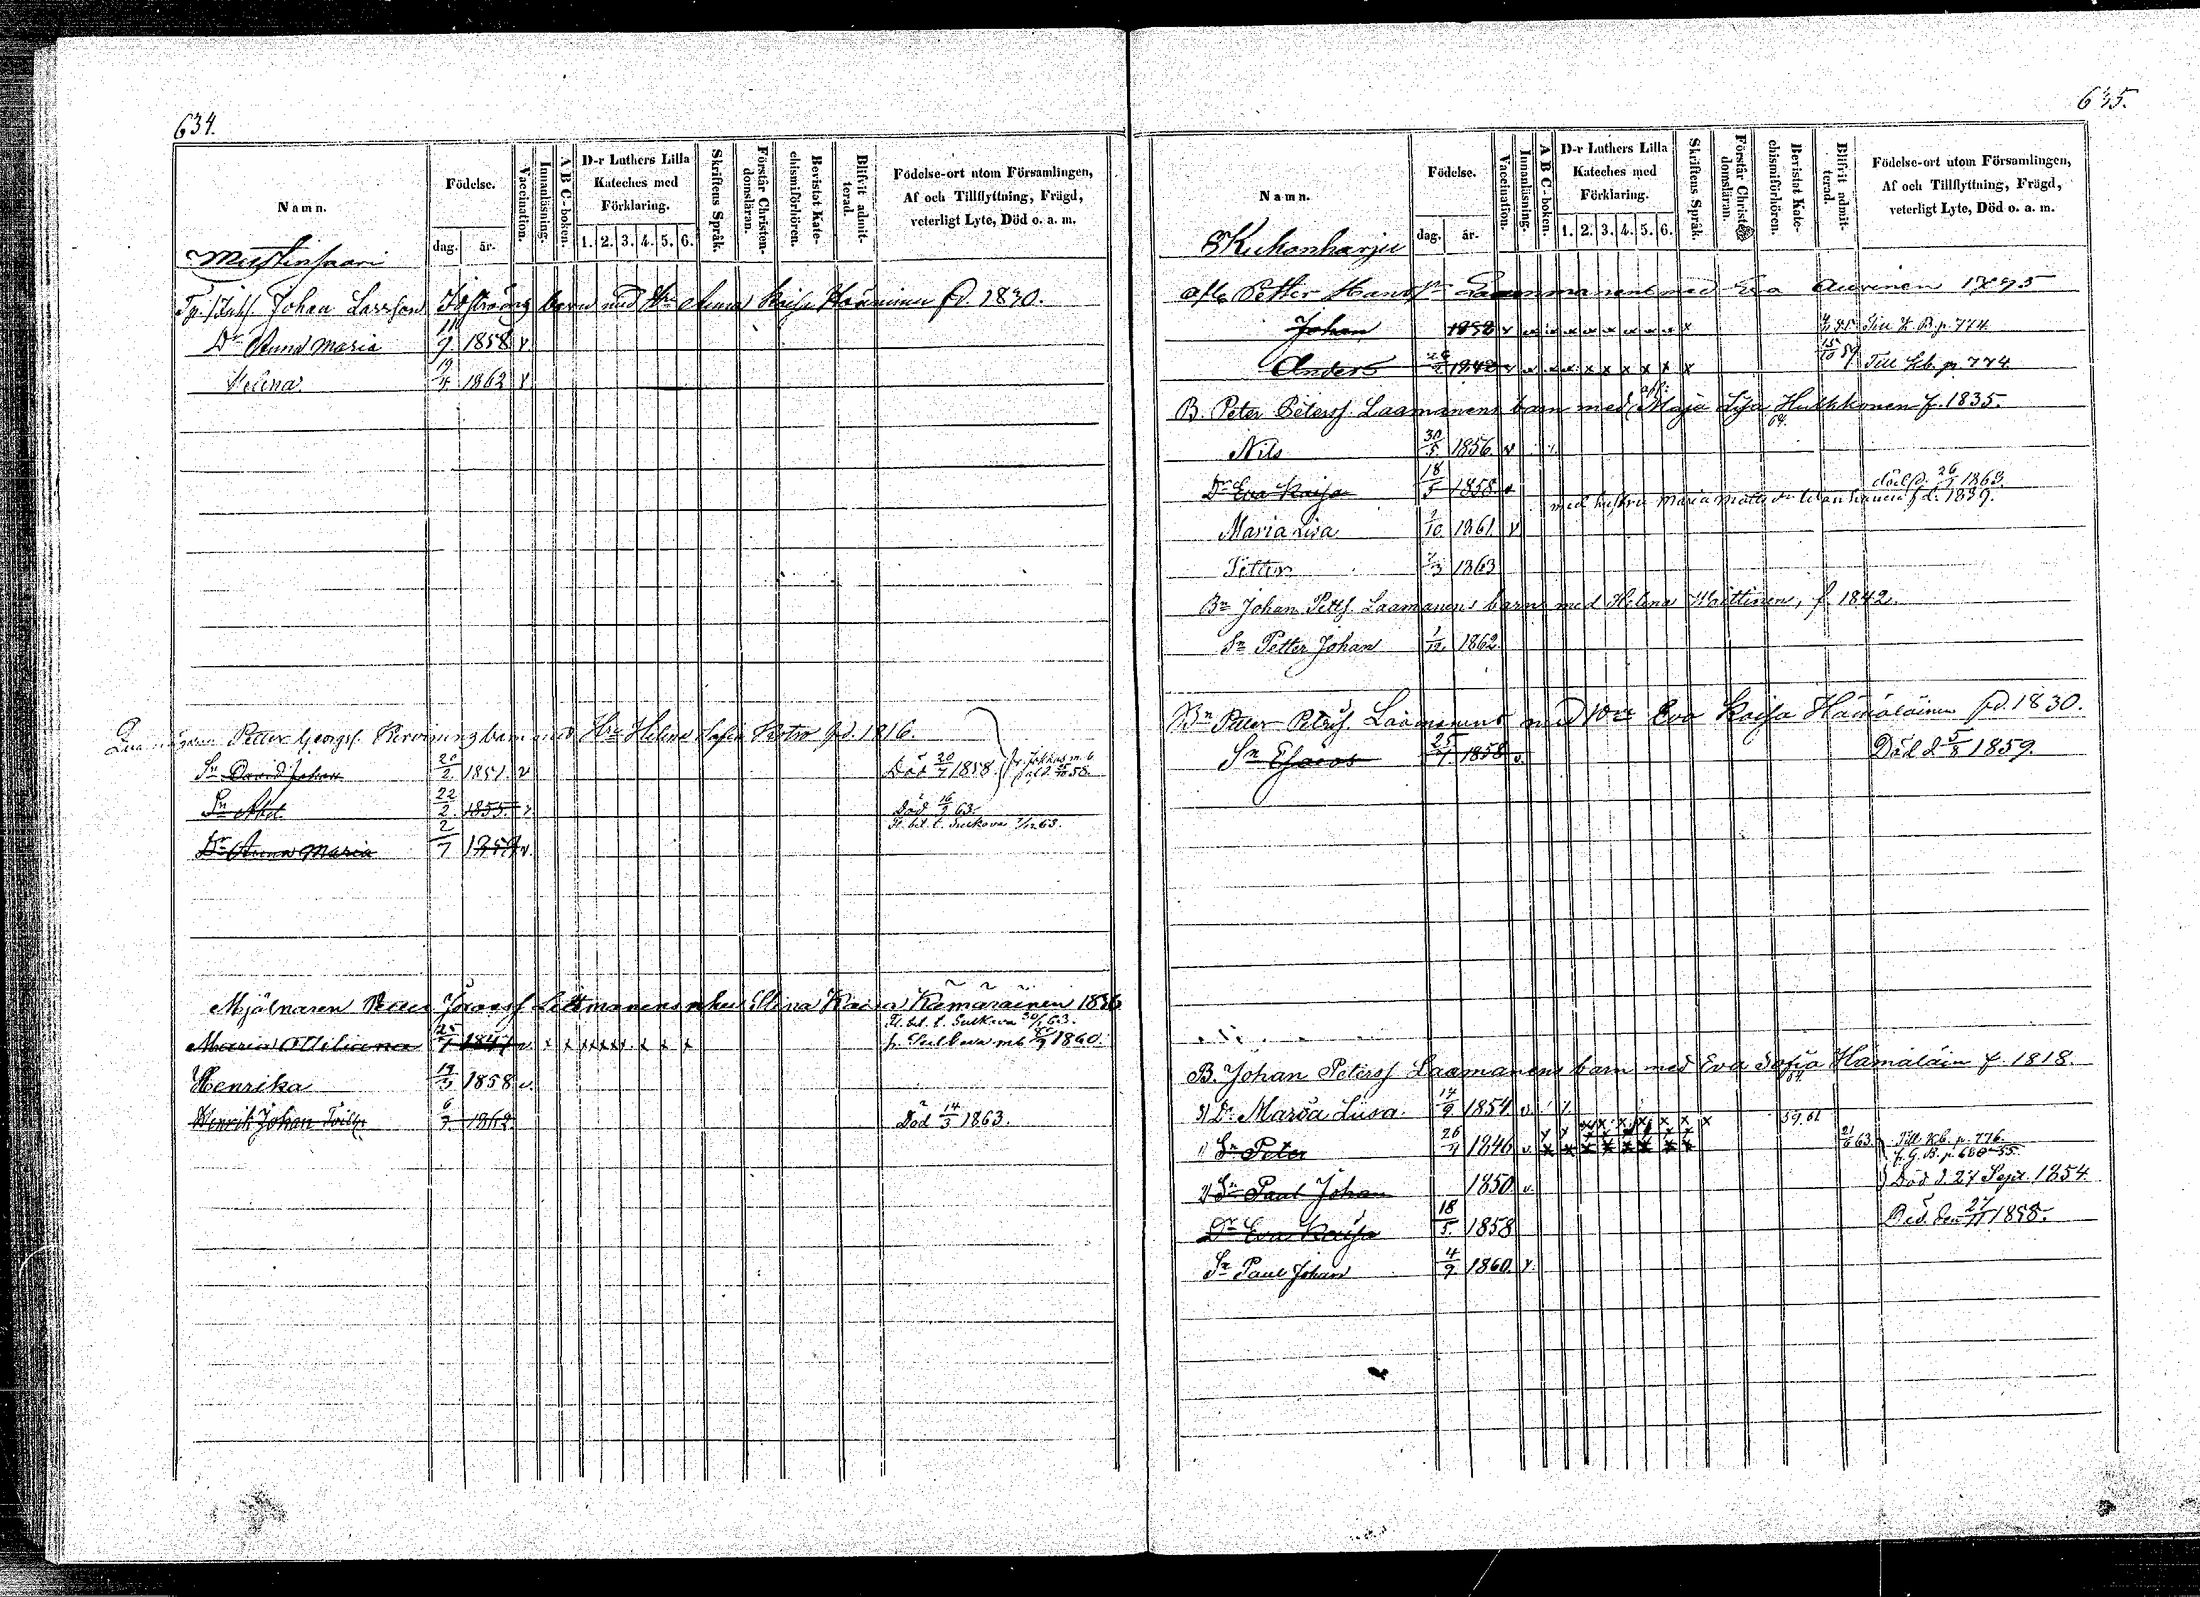 634.
Namn.
Födelse.
dag. år.
Vaccination.
Innanläsning.
A B C-boken.
D-r Luthers Lilla Kateches med Förklaring.
1. 2. 3. 4. 5. 6.
Skriftens Språk.
Förstår Christendomsläran.
Bevistat Katechismiförhören.
Blifvit admitterad.
Födelse-ort utom Församlingen,
Af och Tillflyttning, Frägd,
veterligt Lyte, Död o. a. m.
Mustinsaari
Johan Larsson barn med Hu Anna Kaisa fd. 1830.
Dr Anna Maria 11/9 1858 v
Helena 19/4 1862 v
Petter Georgs. barn med Hu Helena Sofia fd. 1816.
Sn David Johan 20/2 1851. v Död 20/7 1858.
Sn Abel 22/2 1855. v Död 16/2 63.
Dr Anna Maria 2/7 1857 v. Fl. bet. t. Sulkava 63.
Mjölnaren Stina Kaisa Kämäräinen 1836
Fl. bet. t. Sulkava 30/1 63.
Maria Wiliamina 25/1 1847 v. x x x x x x x x x fr. Sulkava mb 1860.
Henrika 19/3 1858 v.
Henrik Johan 6/7 1862 Död 14/3 1863.
635.
Namn.
Födelse.
dag. år.
Vaccination.
Innanläsning.
A B C-boken.
D-r Luthers Lilla Kateches med Förklaring.
1. 2. 3. 4. 5. 6.
Skriftens Språk.
Förstår Christendomsläran.
Bevistat Katechismiförhören.
Blifvit admitterad.
Födelse-ort utom Församlingen,
Af och Tillflyttning, Frägd,
veterligt Lyte, Död o. a. m.
8 Kukonharju
afl. Petter Hanss Laammanens med Eva Auvinen 1795
Johan 1838 v x x x x x x x x x Till K B p. 774
Anders 1842 v x x x x x x x x x 15/10 59 Till Kb. p. 774
B. Peter Peterss. Laamanens barn med afl: Maja Lisa Hulkkonen f. 1835.
Nils 30/5 1856 v
Dr Eva Kaisa 18/5 1858 v död d. 26/1 1863.
med hustru Maria Matts dr f d. 1839.
Maria Lisa 2/10 1861 v
Petter 2/3 1863
Bn Johan Petts. Laamanens barn med Helena Moittinen, f. 1842.
Sn Petter Johan 1/12 1862
Bn Petter Peters. Laamanens med Eva Kaisa Hämäläinen fd. 1830.
Sn Esaias 25/1 1858 v. Död d 5/8 1859.
B. Johan Peterss Laamanens barn med Eva Sofia Hämäläin f. 1818.
3) Dr Maria Liisa. 14/9 1854 v. 59. 61
1) Sn Peter 26/4 1846 v. x x x x x x x x 21/6 63. Till Kb. p. 776.
fr. G. B. p. 680-55.
2) Sn Paul Johan 1850 v. Död d. 27 Sept. 1854
Dr Eva Kaisa 18/5 1858 Död. den 27/11 1858.
Sn Paul Johan 4/9 1860 v.